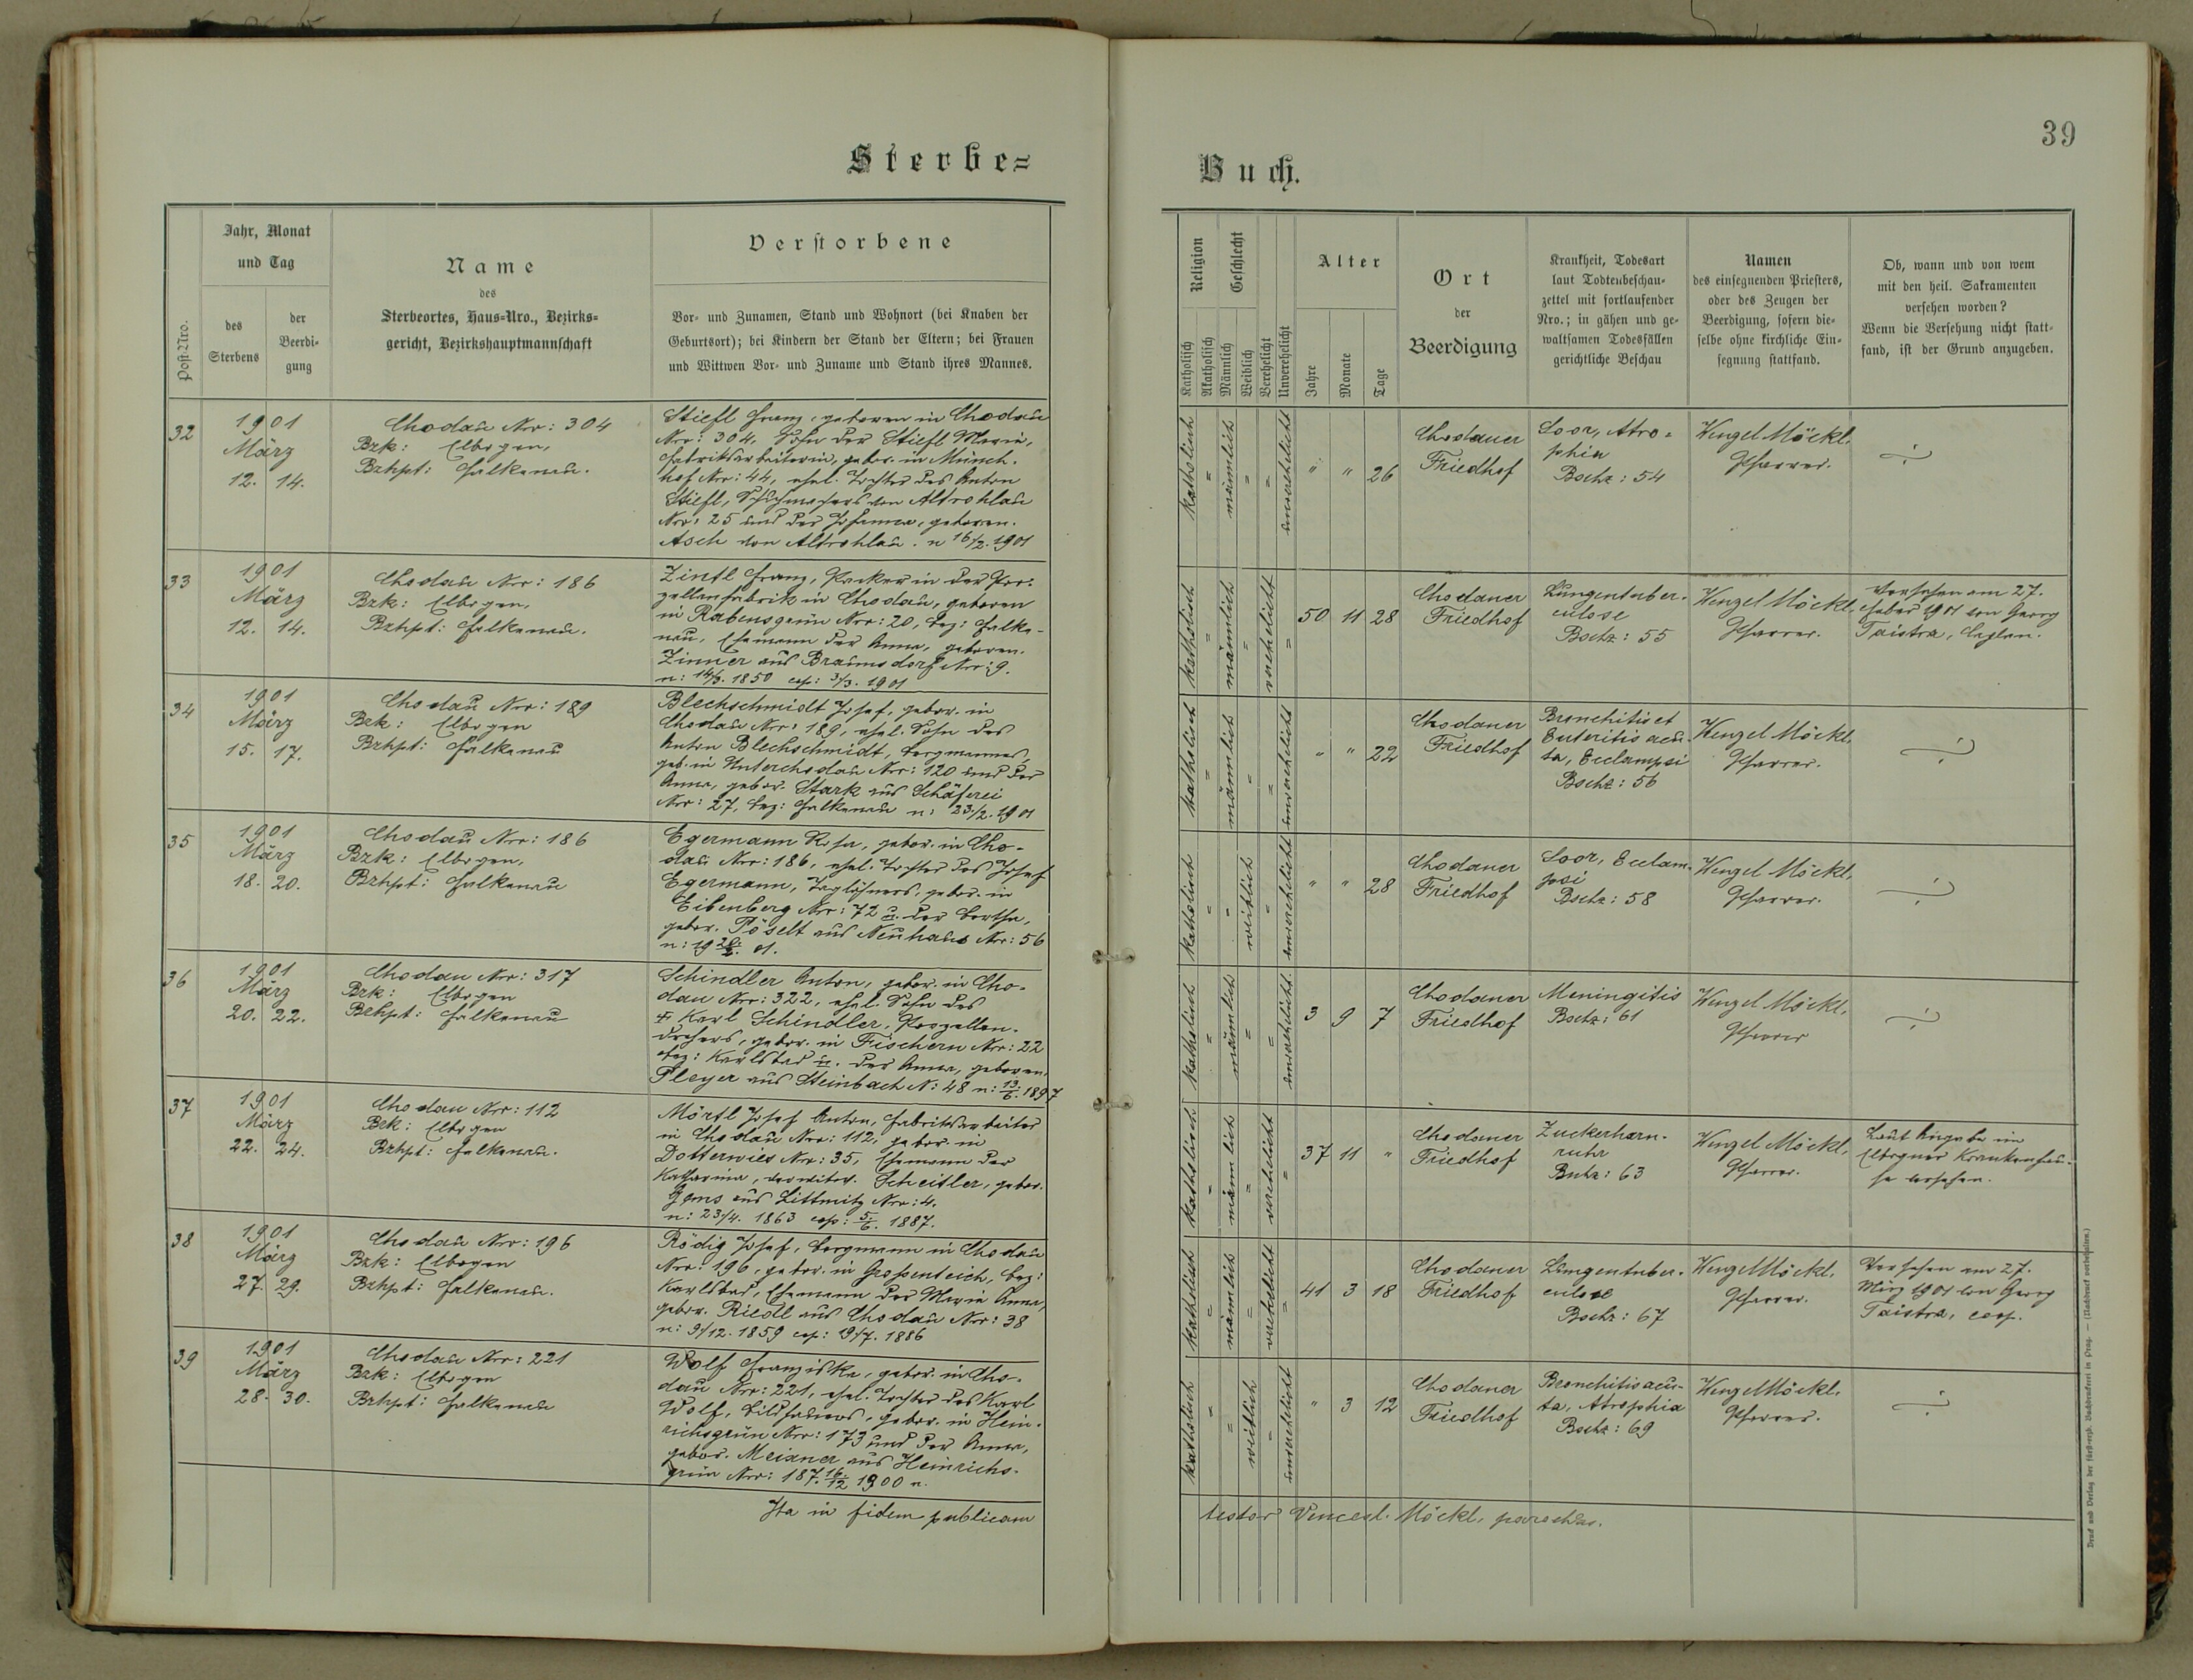 Sterbe=
Buch.
39
Post-Nro.
Jahr, Monat
und Tag
des
Sterbens
der
Beerdi-
gung
Name
des
Sterbeortes, Haus-Nro., Bezirks-
gericht, Bezirkshauptmannschaft
Verstorbene
Vor- und Zunamen, Stand und Wohnort (bei Knaben der
Geburtsort); bei Kindern der Stand der Eltern; bei Frauen
und Wittwen Vor- und Zuname und Stand ihres Mannes.
Religion
Katholisch
Akatholisch
Geschlecht
Männlich
Weiblich
Verehelicht
Unverehelicht
Alter
Jahre
Monate
Tage
Ort
der
Beerdigung
Krankheit, Todesart
laut Todtenbeschau-
zettel mit fortlaufender
Nro.; in gähen und ge-
waltsamen Todesfällen
gerichtliche Beschau
Namen
des einsegnenden Priesters,
oder des Zeugen der
Beerdigung, sofern die-
selbe ohne kirchliche Ein-
segnung stattfand.
Ob, wann und von wem
mit den heil. Sakramenten
versehen worden?
Wenn die Versehung nicht statt-
fand, ist der Grund anzugeben.
32
1901
März
12. 14.
Chodau Nro: 304
Bzk: Elbogen,
Bzhpt: Falkenau.
Stiefl Franz, geboren in Chodau
Nro: 304, Sohn der Stiefl Maria,
Fabriksarbeiterin, gebor. in Münch-
hof Nro: 44, ehel. Tochter des Anton
Stiefl, Schuhmachers von Altrohlau
Nro: 25 und der Johanna, geboren.
Asch von Altrohlau. n 16/2. 1901
katholisch
"
männlich
"
"
unverehelicht
" " 26
Chodauer
Friedhof
Soor, Atro-
phia
Bschz: 54
Wenzel Möckl,
Pfarrer.
33
1901
März
12. 14.
Chodau Nro: 186
Bzk: Elbogen,
Bzhpt: Falkenau.
Zintl Franz, Packer in der Por-
zellanfabrik in Chodau, geboren
in Rabensgrün Nro: 20, Bez: Falke-
nau, Ehemann der Anna, geboren.
Zinner aus Braunsdorf Nro: 9.
n: 14/3. 1850 cop: 3/3. 1901
katholisch
"
männlich
"
verehelicht
"
50 11 28
Chodauer
Friedhof
Lungentuber-
culose
Bschz: 55
Wenzel Möckl,
Pfarrer.
Versehen am 27.
Feber 1901 von Georg
Taistra, Caplan.
34
1901
März
15. 17.
Chodau Nro: 189
Bzk: Elbogen
Bzhpt: Falkenau
Blechschmidt Josef, gebor. in
Chodau Nro: 189, ehel. Sohn des
Anton Blechschmidt, Bergmannes,
geb. in Unterchodau Nro: 120 und der
Anna, gebor. Stark aus Schäferei
Nro: 27, Bez: Falkenau n: 23./2. 1901
katholisch
"
männlich
"
"
unverehelicht
" " 22
Chodauer
Friedhof
Bronchitis et
Enteritis acu-
ta, Ecclampsi
Bschz: 56
Wenzel Möckl,
Pfarrer.
35
1901
März
18. 20.
Chodau Nro: 186
Bzk: Elbogen,
Bzhpt: Falkenau
Egermann Rosa, gebor. in Cho-
dau Nro: 186, ehel. Tochter des Josef
Egermann, Taglöhners, gebor. in
Eibenberg Nro: 72 u. der Bertha,
gebor. Pöselt aus Neuhaus Nro: 56
n: 19 20/2. 01.
katholisch
"
"
weiblich
"
unverehelicht
" " 28
Chodauer
Friedhof
Soor, Ecclam-
psi
Bschz: 58
Wenzel Möckl,
Pfarrer.
36
1901
März
20. 22.
Chodau Nro: 317
Bzk: Elbogen
Bzhpt: Falkenau
Schindler Anton, gebor. in Cho-
dau Nro: 322, ehel. Sohn des
† Karl Schindler, Porzellan-
drehers, gebor. in Fischern Nro: 22
Bez: Karlsbad u. der Anna, geboren.
Pleyer aus Steinbach N: 48 n: 13/6. 1897
katholisch
"
männlich
"
"
unverehelicht.
3 9 7
Chodauer
Friedhof
Meningitis
Bschz: 61
Wenzel Möckl,
Pfarrer
37
1901
März
22. 24.
Chodau Nro: 112
Bzk: Elbogen
Bzhpt: Falkenau.
Mörtl Josef Anton, Fabriksarbeiter
in Chodau Nro: 112, gebor. in
Dotterwies Nro: 35, Ehemann der
Katharina, verwitw. Scheitler, gebor.
Gems aus Littmitz Nro: 4.
n: 23/4. 1863 cop: 5/6. 1887.
katholisch
"
männlich
"
verehelicht
"
37 11 "
Chodauer
Friedhof
Zuckerharn-
ruhr
Bschz: 63
Wenzel Möckl,
Pfarrer.
Laut Angabe im
Elbogner Krankenhau-
se versehen.
38
1901
März
27. 29.
Chodau Nro: 196
Bzk: Elbogen
Bzhpt: Falkenau.
Rödig Josef, Bergmann in Chodau
Nro: 196, gebor. in Grossenteich, Bez:
Karlsbad, Ehemann der Maria Anna,
gebor. Riedl aus Chodau Nro: 38
n: 9/12. 1859 cop: 19/7. 1886
katholisch
"
männlich
"
verehelicht
"
41 3 18
Chodauer
Friedhof
Lungentuber-
culose
Bschz: 67
Wenzel Möckl,
Pfarrer.
Versehen am 27.
März 1901 von Georg
Taistra, coop.
39
1901
März
28. 30.
Chodau Nro: 221
Bzk: Elbogen
Bzhpt: Falkenau
Wolf Franziska, gebor. in Cho-
dau Nro: 221, ehel. Tochter des Karl
Wolf, Bildhauers, gebor. in Hein-
richsgrün Nro: 173 und der Anna,
gebor. Meixner aus Heinrichs-
grün Nro: 187. 16/12 1900 n.
katholisch
"
"
weiblich
"
unverehelicht
" 3 12
Chodauer
Friedhof
Bronchitis acu-
ta, Atrophia
Bschz: 69
Wenzel Möckl,
Pfarrer.
Ita in fidem publicam
testor Vencesl. Möckl, parochus.
Druck und Verlag der fürst-erzb. Buchdruckerei in Prag. — (Nachdruck vorbehalten.)